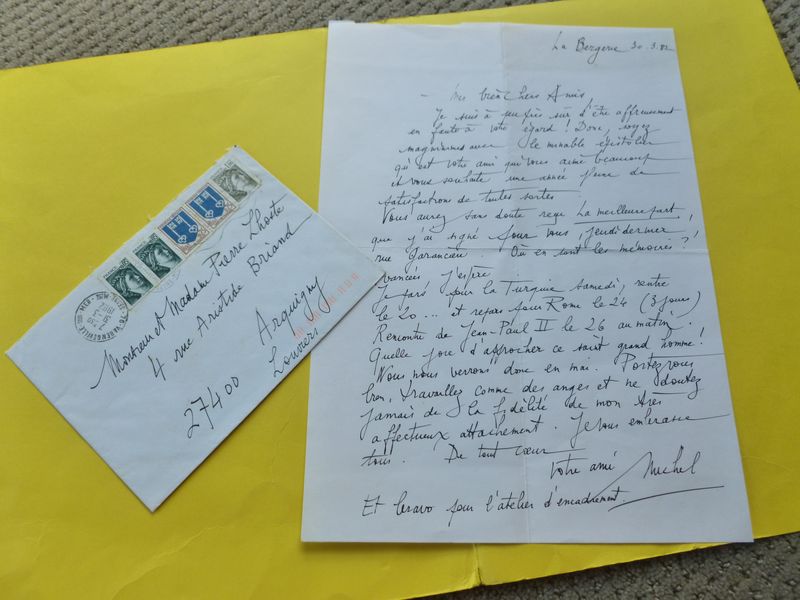 La Bergerie 30.3.82
— Mes bien chers Amis,
Je suis à peu près sûr d'être affreusement
en faute à votre égard ! Donc, soyez
magnanimes avec le minable épistolier
qu'est votre ami qui vous aime beaucoup
et vous souhaite une année pleine de
satisfactions de toutes sortes
Vous aurez sans doute reçu La meilleure part,
que j'ai signé pour vous, jeudi dernier,
rue Garancière. Où en sont les mémoires ? !
Avancés j'espère.
Je pars pour la Turquie samedi, rentre
le 20... et repars pour Rome le 24 (3 jours)
Rencontre de Jean-Paul II le 26 au matin.
Quelle joie d'approcher ce saint grand homme !
Nous nous verrons donc en mai. Portez-vous
bien, travaillez comme des anges et ne doutez
jamais de la fidélité de mon très
affectueux attachement. Je vous embrasse
tous. De tout cœur
Votre ami Michel
Et bravo pour l'atelier d'encadrement.
Monsieur et Madame Pierre Lhoste
4 rue Aristide Briand
Arquigny
27400 Louviers